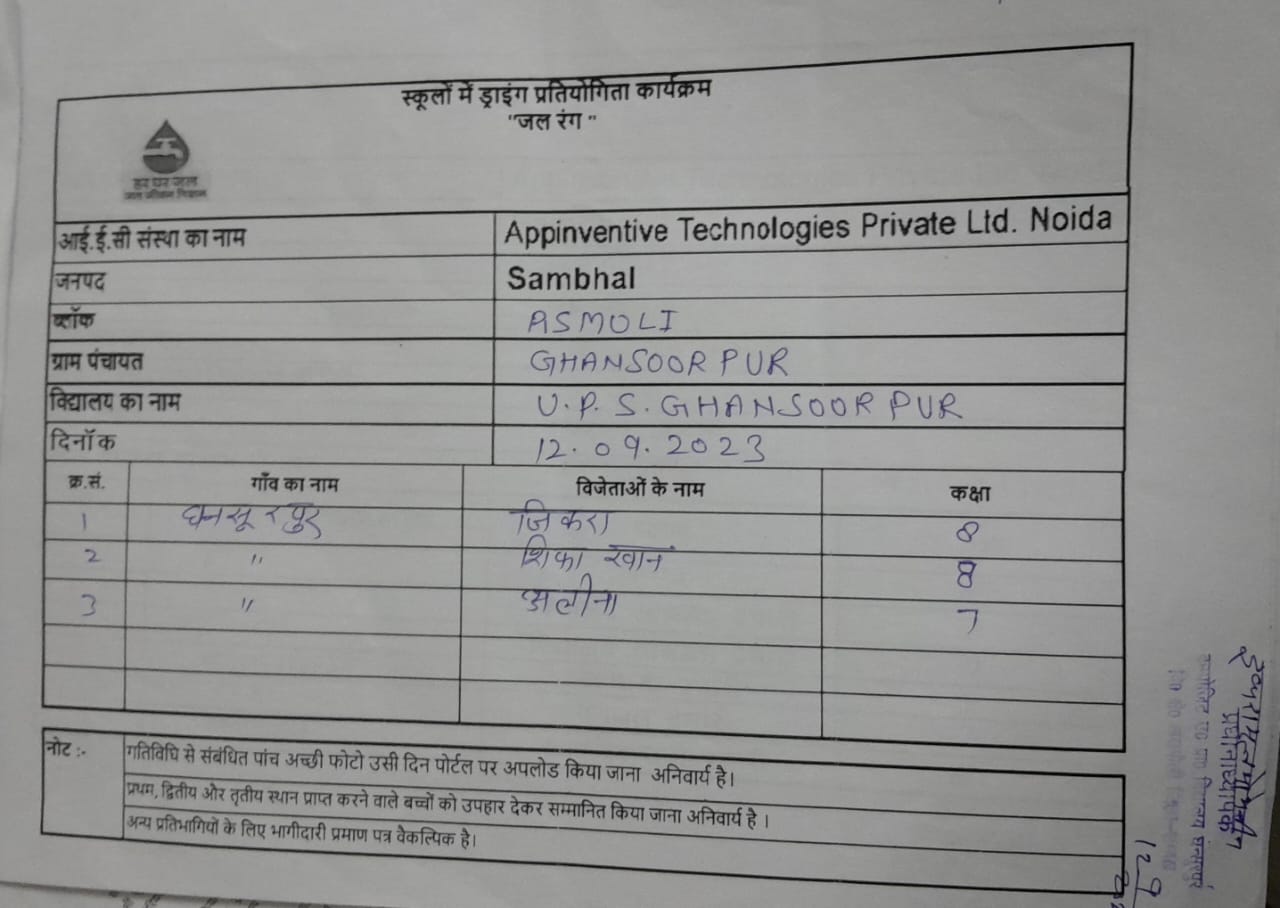 स्कूलों में ड्राइंग प्रतियोगिता कार्यक्रम
"जल रंग "
हर घर जल
जल जीवन मिशन
आई.ई.सी संस्था का नाम Appinventive Technologies Private Ltd. Noida
जनपद Sambhal
ब्लॉक ASMOLI
ग्राम पंचायत GHANSOOR PUR
विद्यालय का नाम U.P.S. GHANSOOR PUR
दिनॉक 12.09.2023
क्र.सं. गाँव का नाम विजेताओं के नाम कक्षा
1 घनसूरपुर जिकरा 8
2 " शिका खान 8
3 " अलीना 7
नोट :- गतिविधि से संबंधित पांच अच्छी फोटो उसी दिन पोर्टल पर अपलोड किया जाना अनिवार्य है।
प्रथम, द्वितीय और तृतीय स्थान प्राप्त करने वाले बच्चों को उपहार देकर सम्मानित किया जाना अनिवार्य है ।
अन्य प्रतिभागियों के लिए भागीदारी प्रमाण पत्र वैकल्पिक है।
प्रधानाध्यापक
12 9